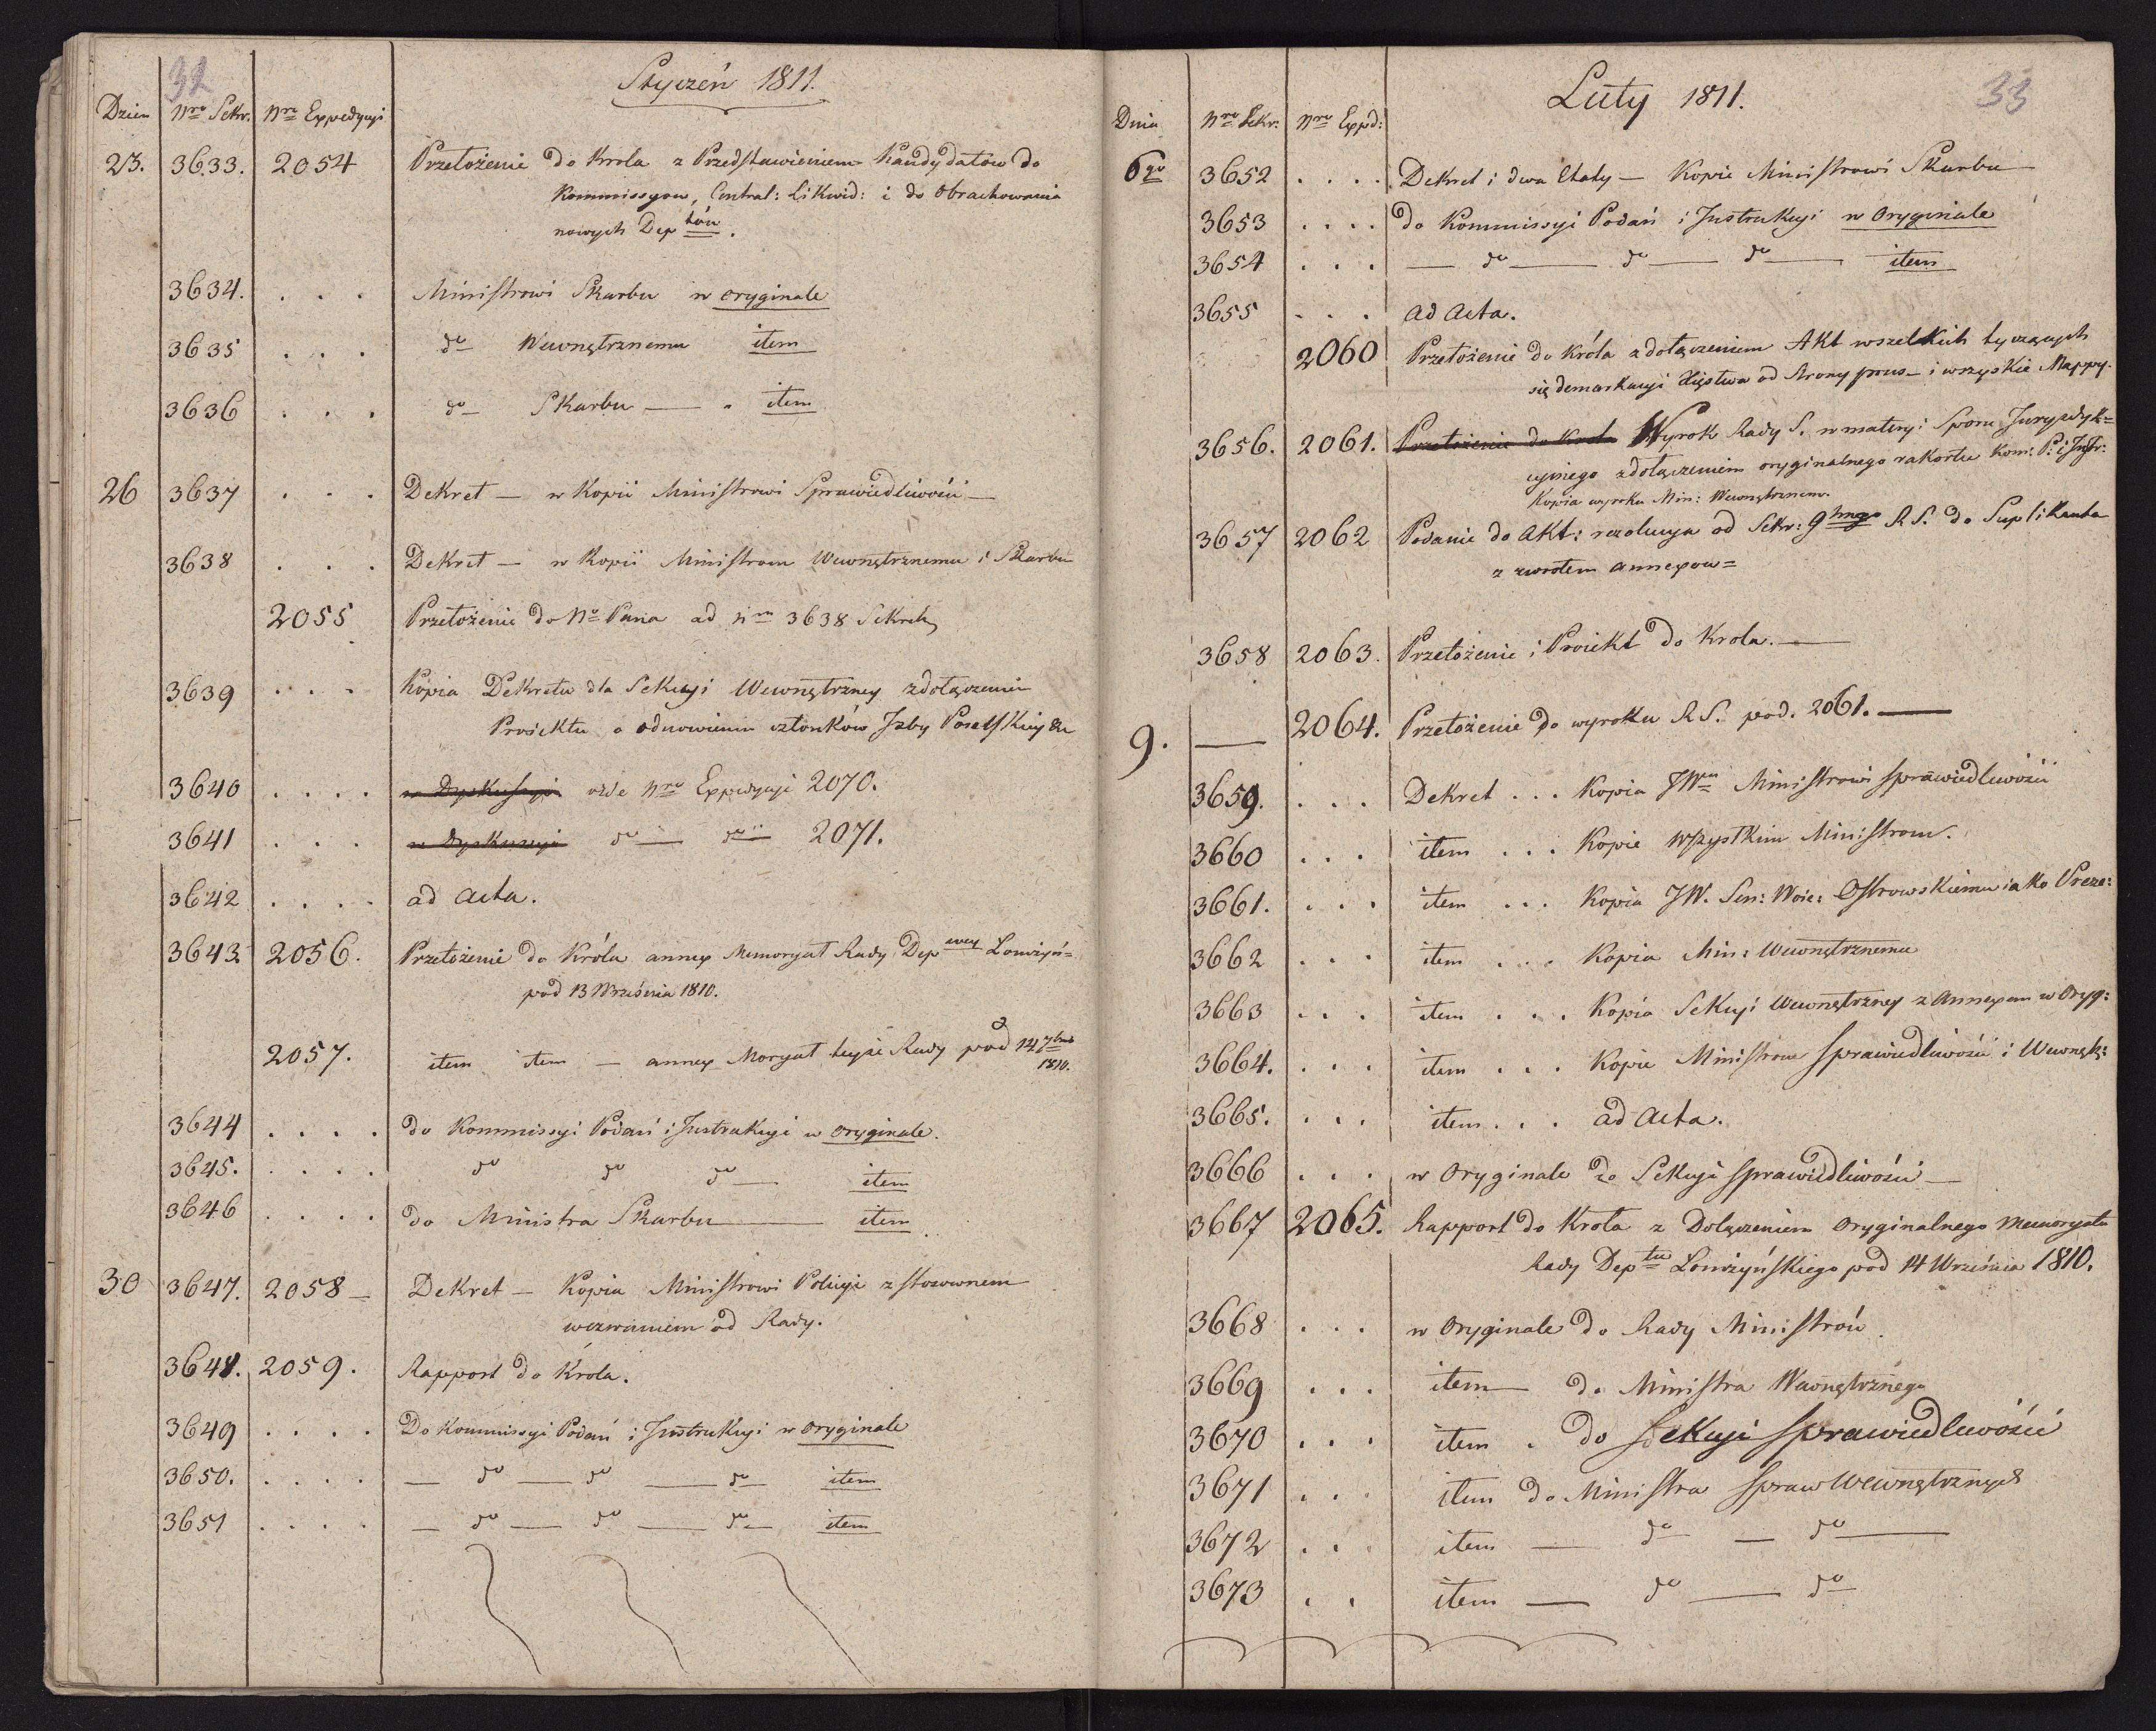 32
Styczeń 1811.
Dzien Nro Sekr. Nro Expedycyi
23. 3633. 2054 Przełożenie do Krola z Przedstawieniem Kandydatów do
Kommissyow, Central: Likwid: i do Obrachowania
nowych Deptów.
3634. . . . Ministrowi Skarbu w oryginale
3635 . . . do Wewnętrznemu item
3636 . . . do Skarbu — item
26 3637 . . . Dekret — w Kopii Ministrowi Sprawiedliwości —
3638 . . . Dekret — w Kopii Ministrom Wewnętrznemu i Skarbu
2055 Przełożenie do No Pana ad nrm 3638 Sekret
3639 . . . Kopia Dekretu dla Sekcyi Wewnętrzney z dołączeniem
Proiektu o odnowieniu członków Jzby Poselskiey
3640 . . . . w Dyskussyi vide Nro Expedycyi 2070.
3641 . . . w Dyskussyi do — do — 2071.
3642 . . . . ad Acta.
3643 2056. Przełożenie do Króla annex Memoryał Rady Depowey Lomżyń=
pod 13 Września 1810.
2057. item item — annex Moryał teyże Rady pod 14 7bris
1810.
3644 . . . . do Kommissyi Podań i Jnstrukcyi w oryginale.
3645. . . . . do do do — item
3646 . . . . do Ministra Skarbu — item
30 3647. 2058 — Dekret — Kopia Ministrowi Policyi z stosownem
wezwaniem od Rady.
3648. 2059. Rapport do Krola.
3649 . . . . Do Kommissyi Podań i Jnstrukcyi w oryginale
3650. . . . . — do — do — do — item
3651 . . . . — do — do — do — item
33
Luty 1811.
Dnia Nro Sekr: Nro Expd:
6go 3652 . . . . Dekret i dwa Etaty — Kopie Ministrowi Skarbu —
3653 . . . . do Kommissyi Podań i Jnstrukcyi w Oryginale
3654 . . . — do — do — do — item
3655 . . . ad Acta.
2060 Przełożenie do króla z dołączeniem Akt wszelkich tyczących
się demarkacyi Xięstwa od strony prus — i wszyskie Mappy.
3656. 2061. Przełożenie do Krola Wyrok Rady S. w materyi Sporu Jurysdyk=
cyinego z dołączeniem oryginalnego raportu Kom: P: i Jnstr:
Kopia wyroku Min: Wewnętrznem.
3657 2062 Podanie do Akt: rezolucya od Sekr: Glnego R S. do Suplikanta
z zwrotem annexow =
3658 2063. Przełożenie i Proiekt do Krola. —
9. — 2064. Przełożenie do wyroku R S. pod. 2061. —
3659. . . . Dekret . . . Kopia JWmu Ministrowi Sprawiedliwości
3660 . . . item . . . Kopie Wszystkim Ministrom.
3661. . . . item . . . Kopia JW. Sen: Woie: Ostrowskiemu iako Preze:
3662 . . . item . . . Kopia Min: Wewnętrznemu
3663 . . . item . . . Kopia Sekcyi Wewnętrzney z Annexem w Oryg:
3664. . . . item . . . Kopie Ministrom Sprawiedliwości i Wewnętz:
3665. . . . item . . . ad Acta.
3666 . . . w Oryginale do Sekcyi Sprawiedliwości —
3667 2065. Rapport do Krola z Dołączeniem Oryginalnego Memoryału
Rady Deptu Lomżyńskiego pod 14 Września 1810.
3668 . . . w Oryginale do Rady Ministrów
3669 . . . item — do Ministra Wewnętrznego
3670 . . . item . do Sekcyi Sprawiedliwości
3671 . . . item do Ministra Spraw Wewnętrznych
3672 . . . item — do — do —
3673 . . item — do — do